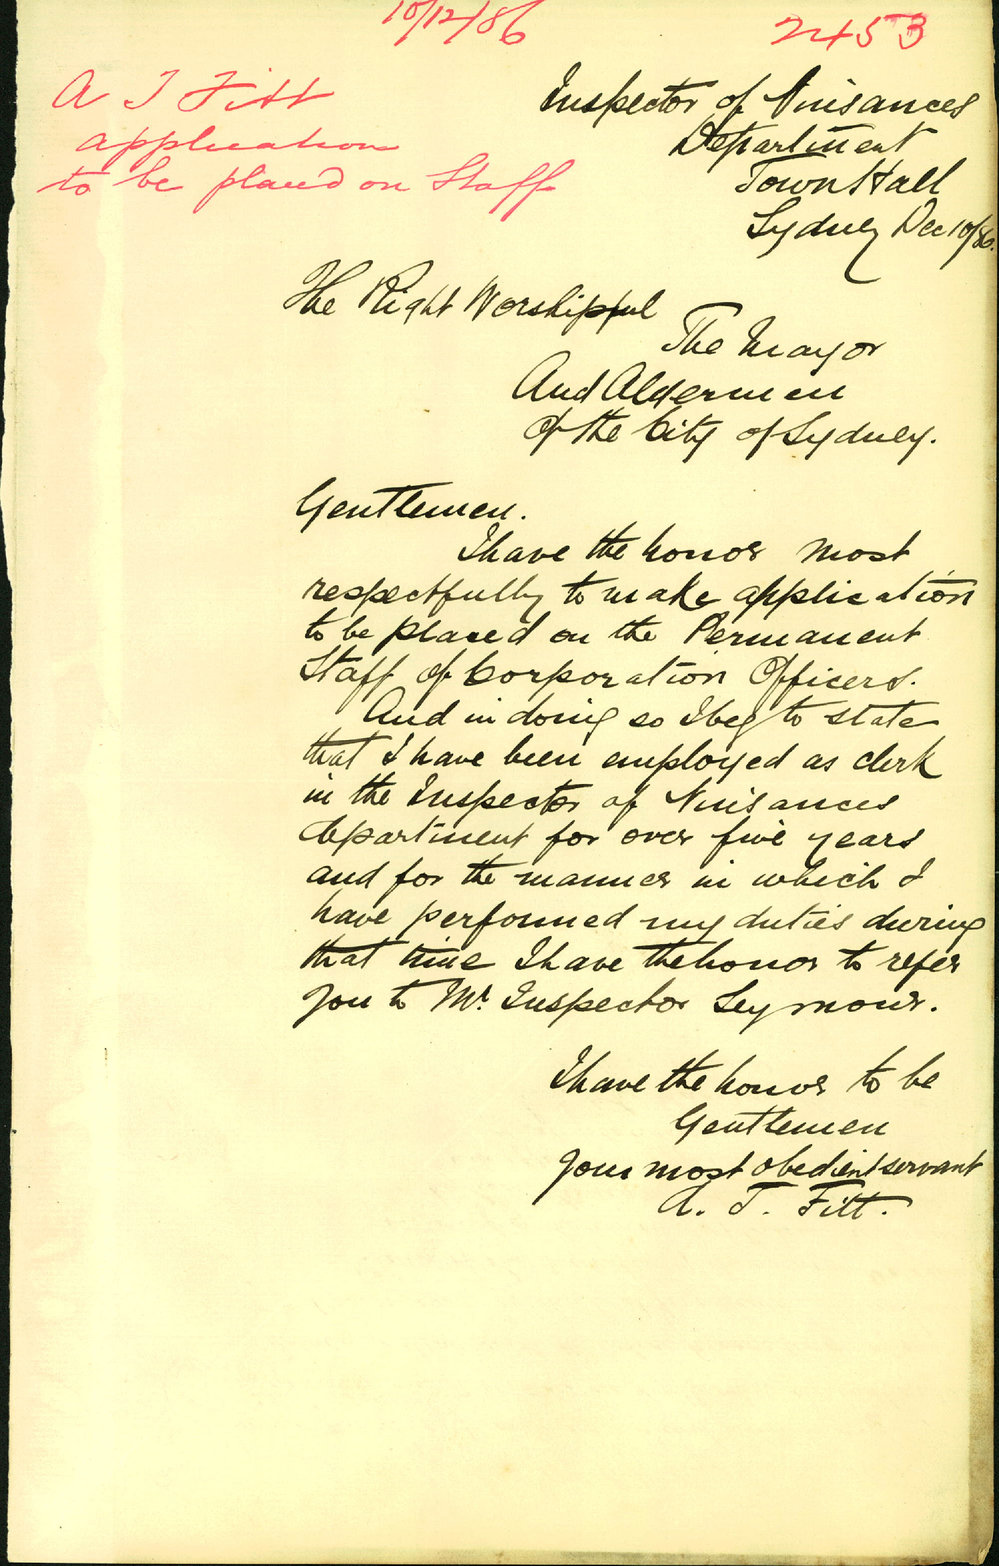 10/12/86
2453
A T Fitt
application
to be placed on Staff
Inspector of Nuisances
Department
Town Hall
Sydney Dec 10/86.
The Right Worshipful
The Mayor
And Aldermen
Of the City of Sydney.
Gentlemen.
I have the honor most
respectfully to make application
to be placed on the Permanent
Staff of Corporation Officers.
And in doing so I beg to state
that I have been employed as clerk
in the Inspector of Nuisances
department for over five years
and for the manner in which I
have performed my duties during
that time I have the honor to refer
you to Mr. Inspector Seymour.
I have the honor to be
Gentlemen
Your most obedient servant
A. T. Fitt.